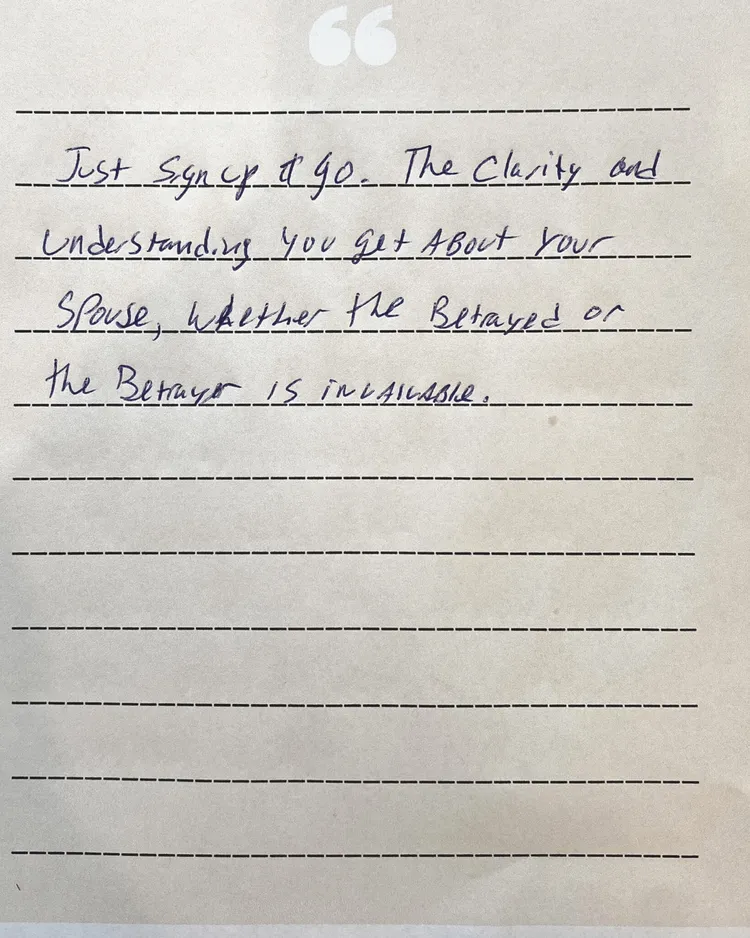 Just Sign up & go. The Clarity and
Understanding You get About Your
Spouse, Whether the Betrayed or
the Betrayer is invaluable.